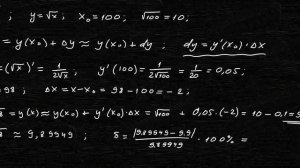 ; y = √x ; x₀ = 100 ; √100 = 10 ;
= y(x₀) + Δy ≈ y(x₀) + dy ; dy = y'(x₀) · Δx
= (√x)' = 1/(2√x) ; y'(100) = 1/(2√100) = 1/20 = 0,05 ;
98 ; Δx = x - x₀ = 98 - 100 = - 2 ;
8 = y(x) ≈ y(x₀) + y'(x₀) · Δx = √100 + 0,05 · (-2) = 10 - 0,1 = 9
≈ 9,89949 ; δ = |9,89949 - 9,9| / 9,89949 · 100% =